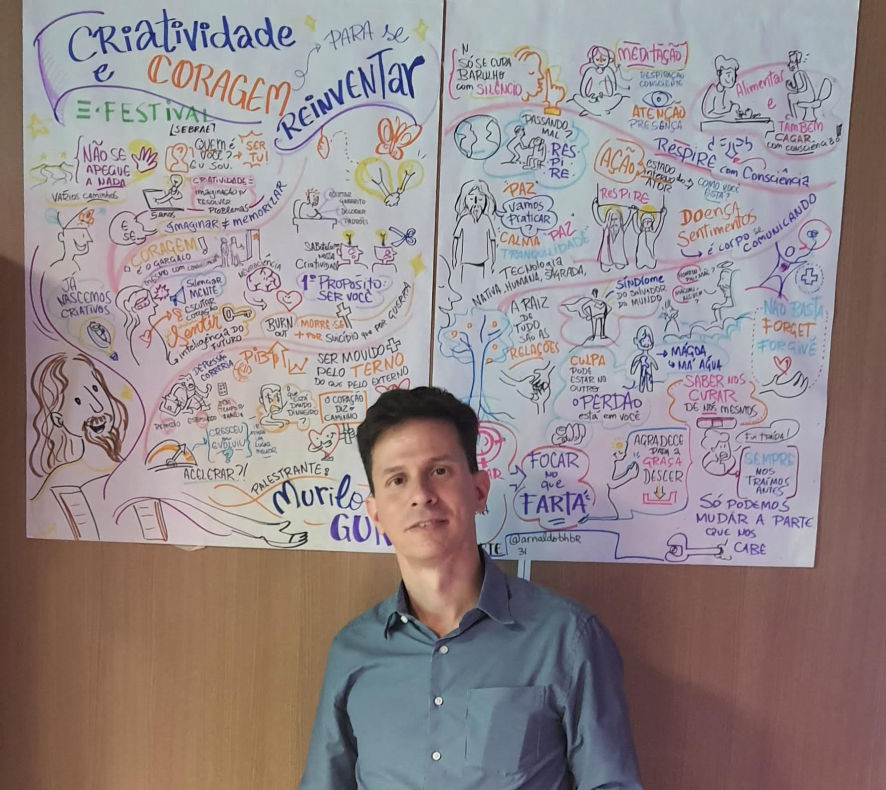 Criatividade
e CORAGEM
PARA se
REINVENTAR
E·FESTIVAL
[SEBRAE]
NÃO SE
APEGUE
A NADA
VÁRIOS CAMINHOS
QUEM é
VOCÊ?
EU SOU.
SER
TU!
CRIATIVIDADE =
IMAGINAÇÃO p/
RESOLVER
PROBLEMAS
5 anos
E SE
IMAGINAR ≠ MEMORIZAR
CORAGEM!
É O GARGALO
JÁ
NASCEMOS
CRIATIVOS
SILENCIAR
MENTE
ESCUTAR
CORAÇÃO
Sentir
inteligência do
FUTURO
NEUROCIÊNCIA
SABOTALHA
NOSSA
Criatividade
1º PROPÓSITO:
SER VOCÊ
BURN
OUT
MORRE-SE
+ POR SUICÍDIO que por GUERRA
DEPRESSA
CORRERIA
PIB
SER MOVIDO
PELO TERNO
DO QUE PELO EXTERNO
O CORAÇÃO
DIZ O
CAMINHO
CRESCEU
EVOLUIU
ACELERAR?!
PALESTRANTE:
Murilo
GUN
SÓ SE CURA
BARULHO
com SILÊNCIO
MEDITAÇÃO
RESPIRAÇÃO
CONSCIENTE
ATENÇÃO
PRESENÇA
Alimentar
e
TAMBÉM
CAGAR
com consciência
PASSANDO
MAL?
RES-
PI-
RE
RESPIRE
com Consciência
AÇÃO
ESTADO
INTERNO do
ATOR
COMO VOCÊ
ESTÁ?
"PAZ"
VAMOS
PRATICAR?
CALMA "PAZ"
TRANQUILIDADE
RESPIRE
DOENÇA
Sentimentos
é CORPO se COMUNICANDO
TECNOLOGIA
NATIVA, HUMANA, SAGRADA,
SÍNDROME
DO SALVADOR
DO MUNDO
NÃO BASTA
FORGET
FORGIVE
A RAIZ
DE
TUDO
SÃO AS
RELAÇÕES
CULPA
PODE
ESTAR NO
OUTRO
O PERDÃO
está em VOCÊ
MÁGOA
MÁ ÁGUA
SABER NOS
CURAR
DE NÓS MESMOS
FOCAR
NO
que
FARTA
AGRADECE
PARA A
GRAÇA
DESCER
FUI TRAÍDA!
SEMPRE
NOS
TRAÍMOS
ANTES
SÓ PODEMOS
MUDAR A PARTE
QUE NOS
CABE
@arnaldobhbr